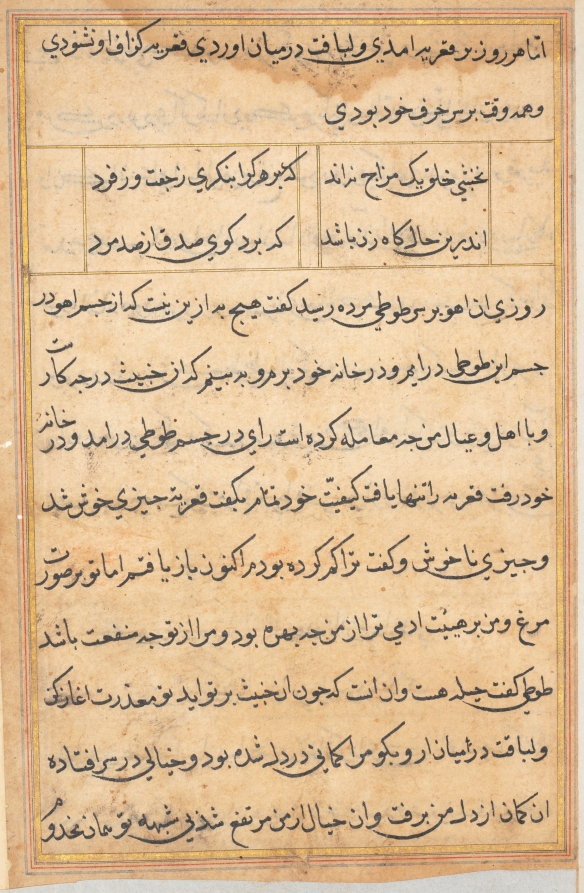 اما هر روز بر قعربه امدی و لباقت درمیان اوردی قعربه کزاف او نشنودی
و همه وقت بر سر حرف خود بودی
نخشبی خلق یک مزاج نراند که بهر کرا بنکری زجفت و زفرد
اندرین حال کاه زن باشد که برد کوی صدق از صد مرد
روزی ان اهو بر سر طوطی مرده رسید کفت هیچ به ازین نیست که از جسم اهو در
جسم این طوطی درایم و در خانه خود بروم و به بینم که ان خبیث درجه کارست
و با اهل و عیال من جه معامله کرده است رای در جسم طوطی درامد و در خانه
خود رفت قعربه را تنها یافت کیفیت خود تمام بکفت قعربه جیزی خوش شد
و جیزی ناخوش و کفت ترا کم کرده بودم اکنون باز یافتم اما تو بر صورت
مرغ و من بر هیئت ادمی ترا از من جه بهره بود و مرا از تو جه منفعت باشد
طوطی کفت حیله هست و ان انست که جون ان خبیث بر تو اید تو معذرت اغاز کن
و لباقت درمیان ار و بکو مرا کمانی در دل شده بود و خیالی در سر افتاده
ان کمان از دل من برفت و ان خیال از من مرتفع شد بی شبهه تو همان مخدوم